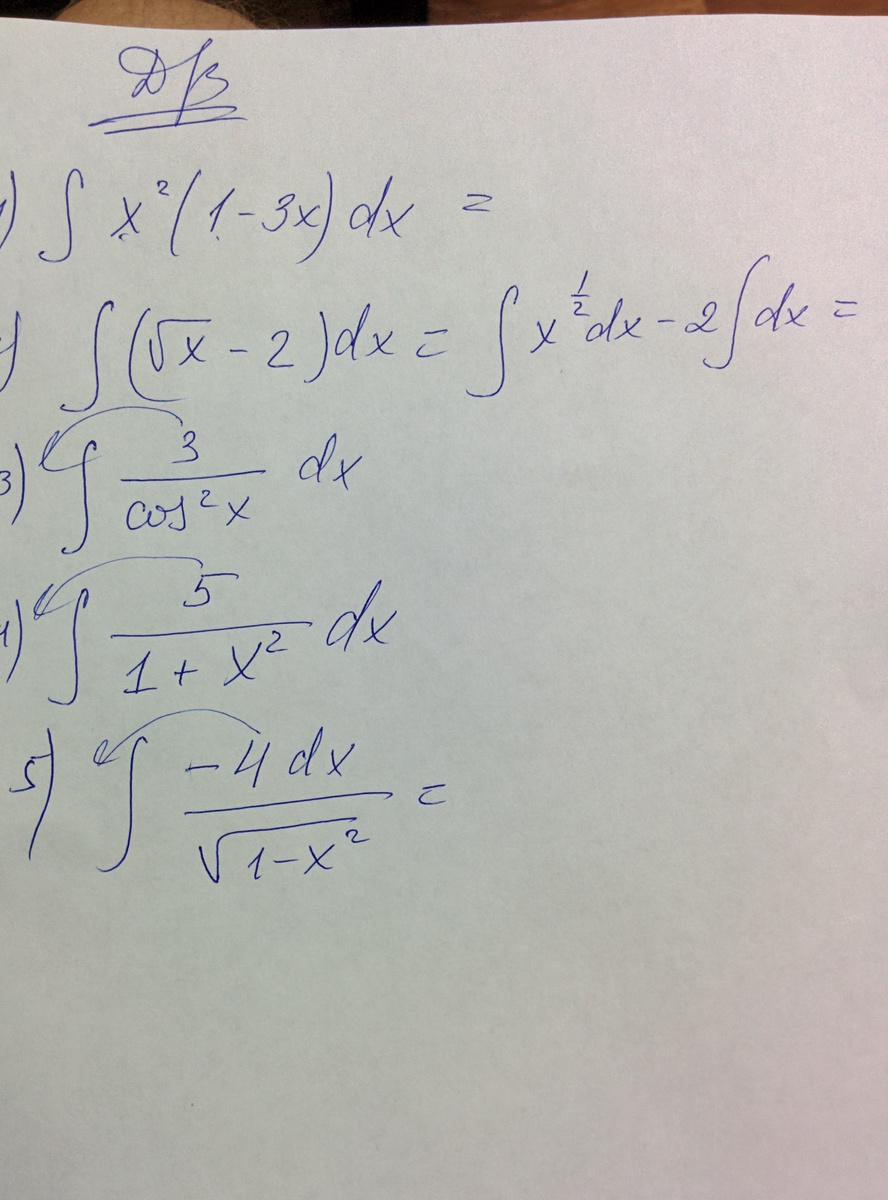 Д/з
) ∫ x²(1-3x)dx =
) ∫(√x - 2)dx = ∫x^(1/2)dx - 2∫dx =
3) ∫ 3/cos²x dx
4) ∫ 5/(1 + x²) dx
5) ∫ -4dx/√(1-x²) =